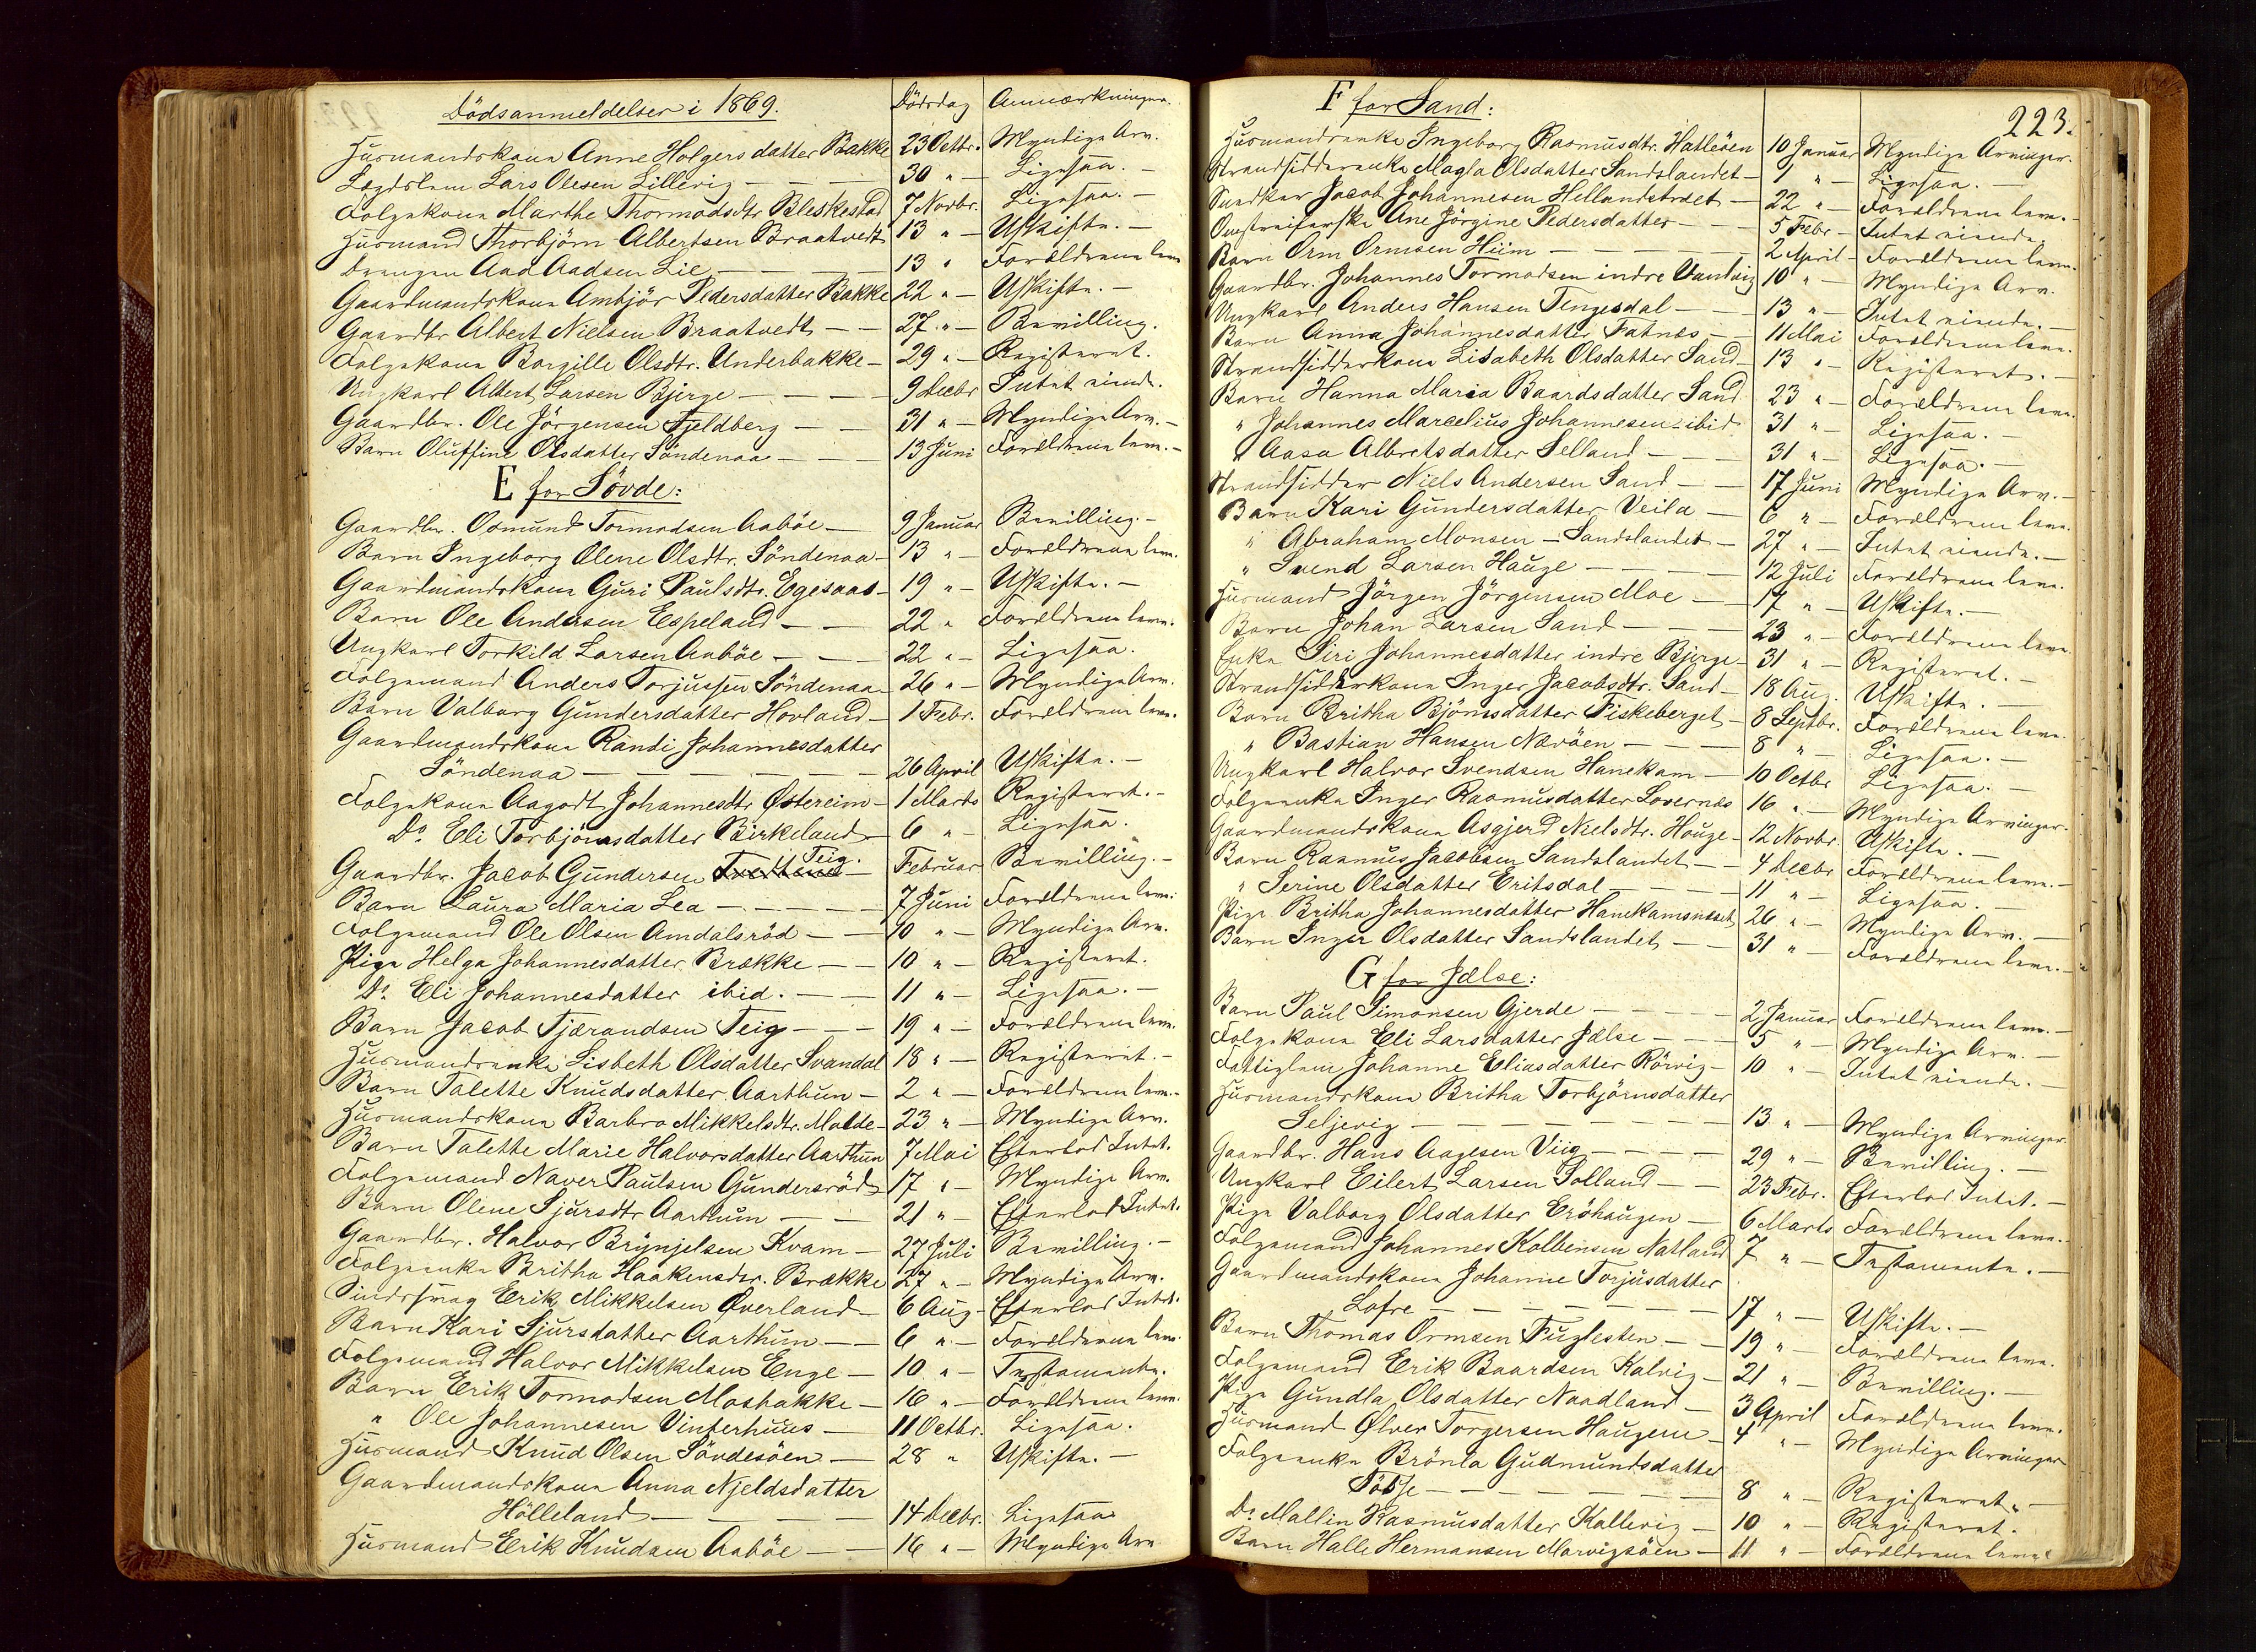 Dödsanmeldelser i 1869. Dödsdag Anmærkninger.
Husmandskone Anne Holgersdatter Bakke 23 Octbr. Myndige Arv.
Lægdslem Lars Olesen Lillevig — 30 " — Ligesaa. —
Folgekone Marthe Thormodsdtr Bleskestad 7 Novbr. Ligesaa. —
Husmand Thorbjörn Albertsen Braatvedt 13 " — Uskifte. —
Drengen Aad Aadsen Lie — 13 " Forældrene leve
Gaardmandskone Ambjör Pedersdatter Bakke 22 " — Uskifte. —
Gaardbr Albert Nielsen Braatvedt — — 27 " — Bevilling.
Folgekone Borgille Olsdtr. Underbakke — 29 " — Registeret.
Ungkarl Albert Larsen Bjerge — — — 9 Decbr Intet eiende.
Gaardbr. Ole Jörgensen Fjeldberg — — 31 " — Myndige Arv. —
Barn Oluffine Olsdatter Söndenaa — — 13 Juni Forældrene leve. —
E for Sövde:
Gaardbr. Osmund Tormodsen Aaböe — 9 Januar Bevilling. —
Barn Ingeborg Olene Olsdtr. Söndenaa — 13 " — Forældrene leve.
Gaardmandskone Guri Paulsdtr. Egesaas — 19 " — Uskifte. —
Barn Ole Andersen Espeland — — 22 " Forældrene leve.
Ungkarl Torkild Larsen Aaböe — — 22 " — Ligesaa.
Folgemand Anders Torjussen Söndenaa 26 " — Myndige Arv.
Barn Valborg Gundersdatter Hovland — 1 Febr. Forældrene leve.
Gaardmandskone Randi Johannesdatter
Söndenaa — — — — — 26 April Uskifte. —
Folgekone Aagodt Johannesdtr Östereim — 1 Marts Registeret. —
Do. Eli Torbjörnsdatter Birkeland 6 " — Ligesaa.
Gaardbr. Jacob Gundersen Teig. — Februar Bevilling. —
Barn Laura Maria Lea — — — 7 Juni Forældrene leve.
Folgemand Ole Olsen Amdalsröd — — 10 " — Myndige Arv.
Pige Helga Johannesdatter Brække — — 10 " — Registeret.
Do. Eli Johannesdatter ibid. — — 11 " — Ligesaa. —
Barn Jacob Tjærandsen Teig — — — 19 " — Forældrene leve.
Husmandsenke Lisbeth Olsdatter Svandal 18 " — Registeret. —
Barn Talette Knudsdatter Aarthun — 2 " — Forældrene leve. —
Husmandskone Barbro Mikkelsdtr. Molde — 23 " — Myndige Arv.
Barn Talette Marie Halvorsdatter Aarthun 7 Mai Efterlod Intet.
Folgemand Naver Paulsen Gundersröd 17 " — Myndige Arv.
Barn Olene Sjursdtr Aarthun — — 21 " — Efterlod Intet.
Gaardbr. Halvor Brynjelsen Kvam — 27 Juli Bevilling. —
Folgeenke Britha Haakensdtr. Brække 27 " — Myndige Arv.
Sindssvag Erik Mikkelsen Överland — 6 Aug — Efterlod Intet.
Barn Kari Sjursdatter Aarthun — — 6 " — Forældrene leve.
Folgemand Halvor Mikkelsen Enge — 10 " — Testamente.
Barn Erik Tormodsen Mosbakke — 16 " — Forældrene leve.
" Ole Johannesen Vinterhuus — 11 Octbr. Ligesaa.
Husmand Knud Olsen Sövdesöen — 28 " Uskifte. —
Gaardmandskone Anna Njeldsdatter
Hölleland — — — 14 Decbr. Ligesaa
Husmand Erik Knudsen Aaböe — — 16 " — Myndige Arv
223.
F for Sand:
Husmandsenke Ingeborg Rasmusdtr. Hatleöen 10 Januar Myndige Arvinger.
Strandsidderenke Magla Olsdatter Sandslandet — 9 " — Ligesaa. —
Jacob Johannesen Hellandstræet — 22 " — Forældrene leve. —
Omstreiferske Ane Jörgine Pedersdatter — — 5 Febr — Intet eiende.
Barn Orm Ormsen Hiim — — — 2 April — Forældrene leve.
Gaardbr. Johannes Tormodsen indre Vanvig 10 " — Myndige Arv.
Ungkarl Anders Hansen Tengesdal — — 13 " — Intet eiende. —
Barn Anna Johannesdatter Fatnes — — 11 Mai Forældrene leve.
Strandsidderkone Lisabeth Olsdatter Sand — 13 " — Registeret. —
Barn Hanna Maria Baardsdatter Sand 23 " — Forældrene leve.
" Johannes Marcelius Johannesen ibid 31 " — Ligesaa. —
" Aasa Albretsdatter Selland — — 31 " — Ligesaa. —
Strandsidder Niels Andersen Sand — — 17 Juni Myndige Arv. —
Barn Kari Gundersdatter Veila — 6 " — Forældrene leve.
" Abraham Monsen — Sandslandet — 27 " — Intet eiende. —
" Svend Larsen Hauge — — — 12 Juli Forældrene leve.
Husmand Jörgen Jörgensen Moe — — 17 " — Uskifte. —
Barn Johan Larsen Sand — — — 23 " — Forældrene leve
Enke Siri Johannesdatter indre Bjerge — 31 " — Registeret. —
Strandsidderkone Inger Jacobsdtr. Sand — 18 Aug. Uskifte. —
Barn Britha Björnsdatter Fiskeberget — 8 Septbr. Forældrene leve.
" Bastian Hansen Nævöen — — — 8 " — Ligesaa. —
Ungkarl Halvor Svendsen Hanekam — 10 Octbr Ligesaa. —
Folgeenke Inger Rasmusdatter Lovernes 16 " — Myndige Arvinger.
Gaardmandskone Asgjerd Nielsdtr. Houge — 12 Novbr. Uskifte. —
Barn Rasmus Jacobsen Sandslandet — — 4 Decbr Forældrene leve. —
" Serine Olsdatter Eritsdal — — — 11 " — Ligesaa. —
Pige Britha Johannesdatter Hanekamsneset 26 " — Myndige Arv. —
Barn Inger Olsdatter Sandslandet — — 31 " — Forældrene leve. —
G for Jælse:
Barn Paul Simonsen Gjerde — — — 2 Januar Forældrene leve. —
Folgekone Eli Larsdatter Jælse — — — 5 " — Myndige Arv. —
Fattiglem Johanne Eliasdatter Rörvig — 10 " — Intet eiende. —
Husmandskone Britha Torbjörnsdatter
Seljevig — — — — — — 13 " — Myndige Arvinger.
Gaardbr. Hans Aagesen Viig — — — — 29 " — Bevilling. —
Ungkarl Eilert Larsen Solland — — 23 Febr. Efterlod Intet. —
Pige Valborg Olsdatter Eröhaugen — 6 Marts Forældrene leve. —
Folgemand Johannes Kolbensen Natland 7 " — Testamente. —
Gaardmandskone Johanne Torjusdatter
Lofre — — — — — 17 " — Uskifte. —
Barn Thomas Ormsen Fuglesten — — 19 " — Forældrene leve.
Folgemand Erik Baardsen Kalvig — 21 " — Bevilling. —
Pige Gundla Olsdatter Naadland — 3 April Forældrene leve.
Husmand Ölver Torgersen Haugene — 4 " — Myndige Arvinger
Folgeenke Brönla Gudmundsdatter
— — — — — 8 " — Registeret. —
Do. Mallin Rasmusdatter Kallevig — 10 " — Registeret.
Barn Halle Hermansen Marvigsöen — 11 " — Forældrene leve